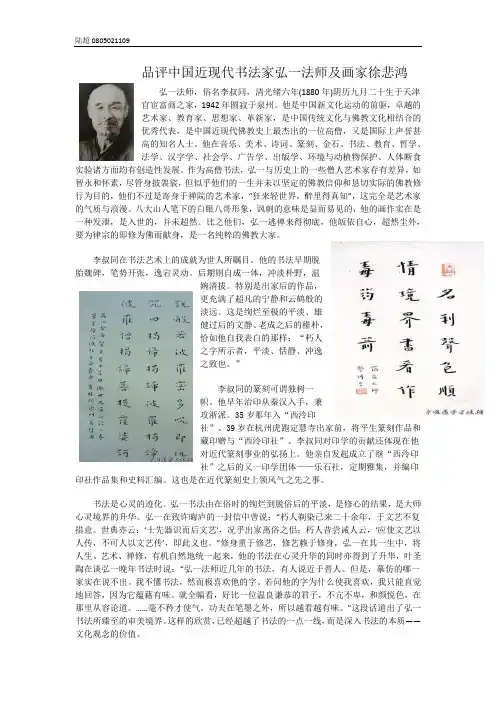 陆超 0805021109
品评中国近现代书法家弘一法师及画家徐悲鸿
弘一法师，俗名李叔同，清光绪六年(1880 年)阴历九月二十生于天津
官宦富商之家，1942 年圆寂于泉州。他是中国新文化运动的前驱，卓越的
艺术家、教育家、思想家、革新家，是中国传统文化与佛教文化相结合的
优秀代表，是中国近现代佛教史上最杰出的一位高僧，又是国际上声誉甚
高的知名人士。他在音乐、美术、诗词、篆刻、金石、书法、教育、哲学、
法学、汉字学、社会学、广告学、出版学、环境与动植物保护、人体断食
实验诸方面均有创造性发展。作为高僧书法，弘一与历史上的一些僧人艺术家存有差异，如
智永和怀素，尽管身披袈裟，但似乎他们的一生并未以坚定的佛教信仰和恳切实际的佛教修
行为目的，他们不过是寄身于禅院的艺术家，“狂来轻世界，醉里得真知”，这完全是艺术家
的气质与浪漫。八大山人笔下的白眼八哥形象，讽刺的意味是显而易见的，他的画作实在是
一种发泄，是入世的，并未超然。比之他们，弘一逃禅来得彻底，他皈依自心，超然尘外，
要为律宗的即修为佛而献身，是一名纯粹的佛教大家。
李叔同在书法艺术上的成就为世人所瞩目。他的书法早期脱
胎魏碑，笔势开张，逸宕灵动。后期则自成一体，冲淡朴野，温
婉清拔。特别是出家后的作品，
更充满了超凡的宁静和云鹤般的
淡远。这是绚烂至极的平淡、雄
健过后的文静、老成之后的稚朴，
恰如他自我表白的那样：“朽人
之字所示者，平淡、恬静、冲逸
之致也。”
李叔同的篆刻可谓独树一
帜。他早年治印从秦汉入手，兼
攻浙派。35 岁那年入“西泠印
社”。39 岁在杭州虎跑定慧寺出家前，将平生篆刻作品和
藏印赠与“西泠印社”。李叔同对印学的贡献还体现在他
对近代篆刻事业的弘扬上。他亲自发起成立了继“西泠印
社”之后的又一印学团体——乐石社，定期雅集，并编印
印社作品集和史料汇编。这也是在近代篆刻史上领风气之先之事。
书法是心灵的迹化。弘一书法由在俗时的绚烂到脱俗后的平淡，是修心的结果，是大师
心灵境界的升华。弘一在致许晦庐的一封信中曾说：“朽人剃染已来二十余年，于文艺不复
措意。世典亦云：‘士先器识而后文艺’，况乎出家离俗之侣；朽人昔尝诫人云，‘应使文艺以
人传，不可人以文艺传’，即此义也。”修身重于修艺，修艺赖于修身，弘一在其一生中，将
人生、艺术、禅修，有机自然地统一起来。他的书法在心灵升华的同时亦得到了升华，叶圣
陶在谈弘一晚年书法时说：“弘一法师近几年的书法，有人说近于晋人。但是，摹仿的哪一
家实在说不出。我不懂书法，然而极喜欢他的字。若问他的字为什么使我喜欢，我只能直觉
地回答，因为它蕴藉有味。就全幅看，好比一位温良谦恭的君子，不亢不卑，和颜悦色，在
那里从容论道。……毫不矜才使气，功夫在笔墨之外，所以越看越有味。”这段话道出了弘一
书法所臻至的审美境界。这样的欣赏，已经超越了书法的一点一线，而是深入书法的本质——
文化观念的价值。
名利声色顺
情境界书看作
毒药毒箭